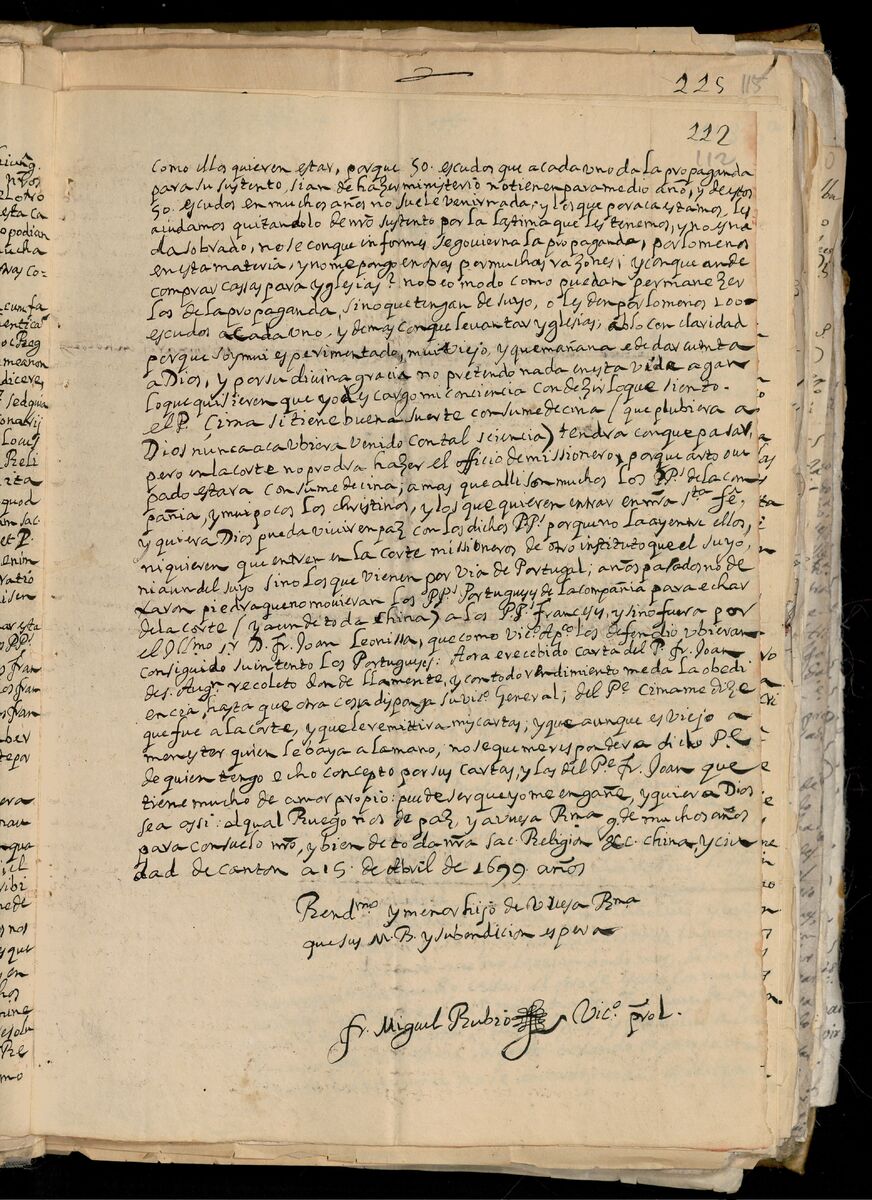 225 115
222
112
como ellos quieren estar, porque 50. escudos que a cada uno da la propaganda
para su sustento, si an de hazer ministerio no tienen para medio año, y de estos
50. escudos en muchos años no suele venir nada; y los que por aca estamos, les
aiudamos quitandolo de nr̃o sustento por la lastima que les tenemos, y no es na
da sobrado, no se con que informes se govierna la propaganda, por lo menos
en esta materia, y no me pongo en otras por muchas razones; y con que an de
comprar casas para yglesias? no veo modo como puedan permanezer
los de la propaganda, sino que tengan de suyo, o les den por lo menos 100
escudos a cada uno, y demas con que levantar yglesias; ablo con claridad
porque soy mui esperimentado, mui viejo, y que mañana e de dar cuenta
a Dios, y por su divina gracia no pretendo nada en esta vida agan
lo que quisieren que yo cargo mi conciencia con dezir lo que siento.
el P. Cima si tiene buena suerte con su medecina (que plubiera a
Dios nunca aca ubiera venido con tal sciencia) tendra con que pasar,
pero en la corte no prodra hazer el officio de missionero, porque arto ocu
pado estara con su medecina; a mas que alli son muchos los PP.s de la com
pañia, y mui pocos los christinos, y los que quieren entrar en nr̃a s.ta fẽ,
y quiera Dios pueda vivir en paz con los dichos PP.s porque no la ay entre ellos,
ni quieren que entren en la corte missioneros de otro instituto que el suyo,
ni aun del suyo sino los que vienen por via de Portugal; años pasados no de
xaron piedra que no movieran los PP.s Portugueses de la compañia para echar
de la corte (y aun de toda China) a los PP.s Franceses, y sino fuera por
el Ill.mo s.r D. Fr. Joan Leonissa, que como Vic.o Ap.co los defendio ubieran
conseguido su intento los Portugueses. Aora e recebido carta del P. fr. Joan
des. Aug.n recoleto don de llamente, y con todo rendimiento me da la obedi
encia, hasta que otra cossa disponga su vic.o General; del P.e Cima me dize
que fue a la corte, y que le remittira mis cartas; y que aunque es viejo a
menester quien le baya a la mano, no se que me respondera dicho P.e
de quien tengo echo concepto por sus cartas, y las del P.e fr. Joan que
tiene mucho de amor propio: puede ser que yo me engañe, y quiera Dios
sea assi: al qual Ruego nos de paz, y a vuesa Rma g.de muchos años
para consuelo nr̃o, y bien de toda nr̃a sac. Religion &c. china, y ciu
dad de canton a 15 de Abril de 1699 años
Rend.mo y menor hijo de Vuesa Rma
que sus M. B. y su bendicion espera
fr. Miguel Rubio Vic.o prol.